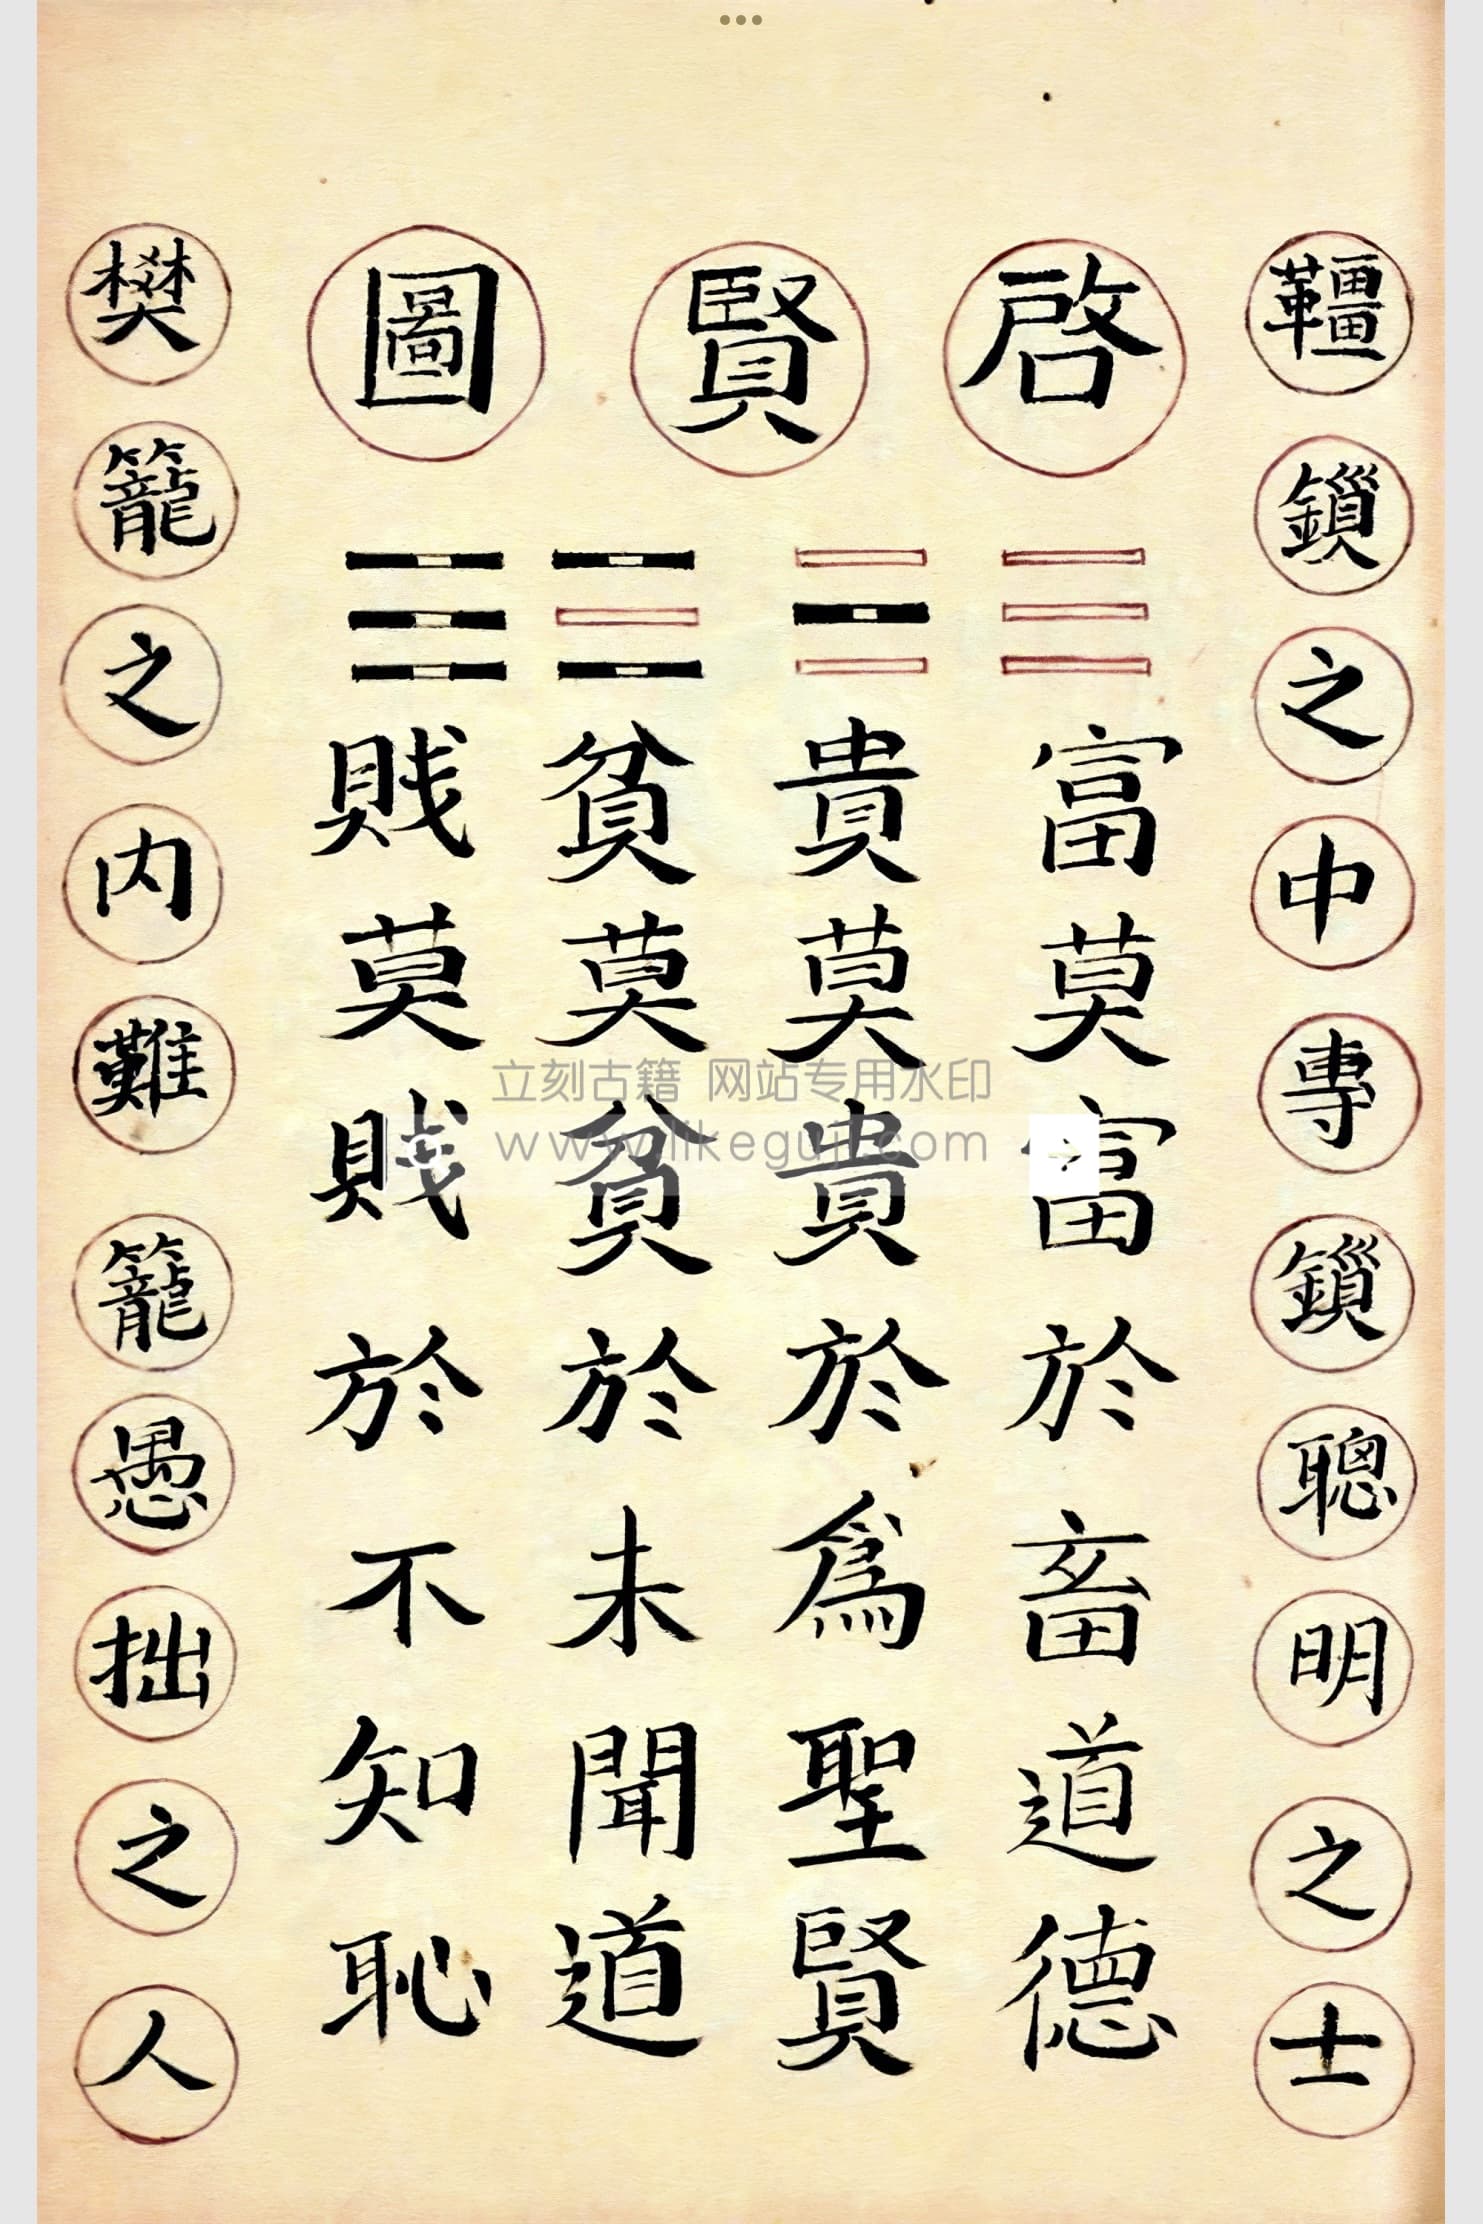 韁鎖之中專鎖聰明之士
啓賢圖
富莫富於畜道德
貴莫貴於爲聖賢
貧莫貧於未聞道
賎莫賎於不知恥
樊籠之内難籠愚拙之人
立刻古籍 网站专用水印
www.likeguji.com